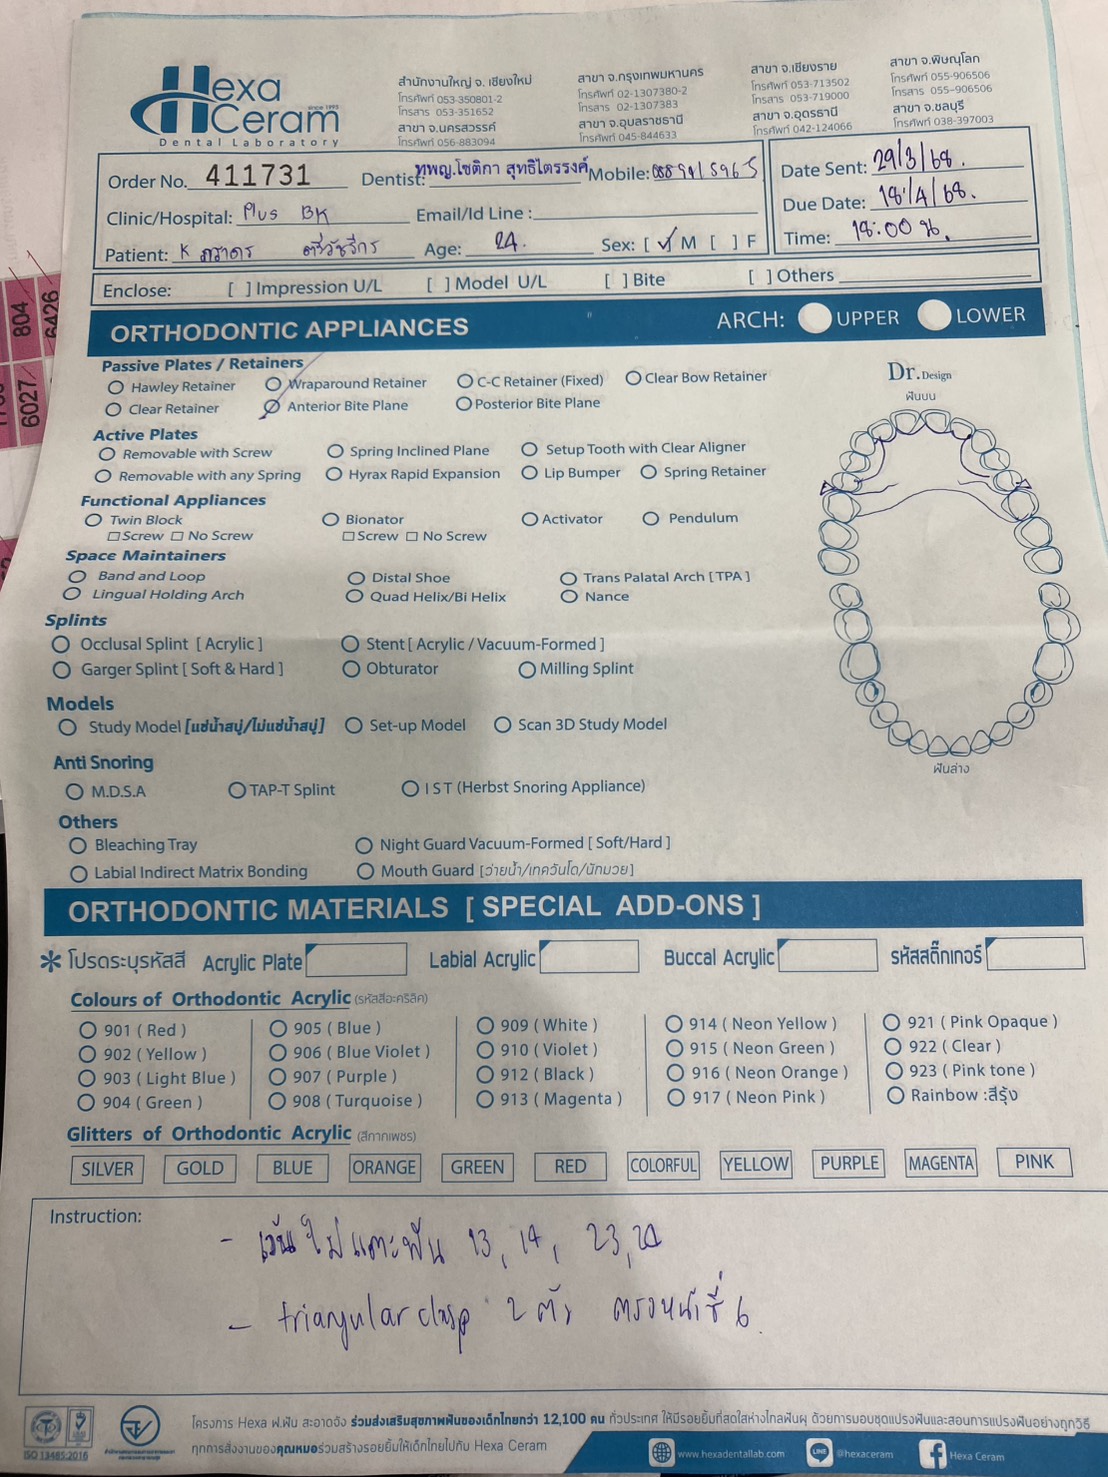 Hexa Ceram
since 1995
Dental Laboratory
สำนักงานใหญ่ จ. เชียงใหม่
โทรศัพท์ 053-350801-2
โทรสาร 053-351652
สาขา จ.นครสวรรค์
โทรศัพท์ 056-883094
สาขา จ.กรุงเทพมหานคร
โทรศัพท์ 02-1307380-2
โทรสาร 02-1307383
สาขา จ.อุบลราชธานี
โทรศัพท์ 045-844633
สาขา จ.เชียงราย
โทรศัพท์ 053-713502
โทรสาร 053-719000
สาขา จ.อุดรธานี
โทรศัพท์ 042-124066
สาขา จ.พิษณุโลก
โทรศัพท์ 055-906506
โทรสาร 055-906506
สาขา จ.ชลบุรี
โทรศัพท์ 038-397003
Order No. 411731 Dentist: ทพญ.โชติกา สุทธิไตรรงค์ Mobile:
Clinic/Hospital: Plus BK Email/Id Line :
Patient: K Age: 24. Sex: [ ✓ ] M [ ] F
Date Sent: 29/3/68.
Due Date: 18/4/68.
Time: 18:00 น.
Enclose: [ ] Impression U/L [ ] Model U/L [ ] Bite [ ] Others
ORTHODONTIC APPLIANCES ARCH: UPPER LOWER
Passive Plates / Retainers
Hawley Retainer Wraparound Retainer C-C Retainer (Fixed) Clear Bow Retainer
Clear Retainer Anterior Bite Plane Posterior Bite Plane
Active Plates
Removable with Screw Spring Inclined Plane Setup Tooth with Clear Aligner
Removable with any Spring Hyrax Rapid Expansion Lip Bumper Spring Retainer
Functional Appliances
Twin Block Bionator Activator Pendulum
Screw No Screw Screw No Screw
Space Maintainers
Band and Loop Distal Shoe Trans Palatal Arch [ TPA ]
Lingual Holding Arch Quad Helix/Bi Helix Nance
Splints
Occlusal Splint [ Acrylic ] Stent [ Acrylic / Vacuum-Formed ]
Garger Splint [ Soft & Hard ] Obturator Milling Splint
Models
Study Model [แช่น้ำสบู่/ไม่แช่น้ำสบู่] Set-up Model Scan 3D Study Model
Anti Snoring
M.D.S.A TAP-T Splint I S T (Herbst Snoring Appliance)
Others
Bleaching Tray Night Guard Vacuum-Formed [ Soft/Hard ]
Labial Indirect Matrix Bonding Mouth Guard [ว่ายน้ำ/เทควันโด/นักมวย]
Dr. Design
ฟันบน
ฟันล่าง
ORTHODONTIC MATERIALS [ SPECIAL ADD-ONS ]
* โปรดระบุรหัสสี Acrylic Plate Labial Acrylic Buccal Acrylic รหัสสติ๊กเกอร์
Colours of Orthodontic Acrylic (รหัสสีอะคริลิค)
901 ( Red ) 905 ( Blue ) 909 ( White ) 914 ( Neon Yellow ) 921 ( Pink Opaque )
902 ( Yellow ) 906 ( Blue Violet ) 910 ( Violet ) 915 ( Neon Green ) 922 ( Clear )
903 ( Light Blue ) 907 ( Purple ) 912 ( Black ) 916 ( Neon Orange ) 923 ( Pink tone )
904 ( Green ) 908 ( Turquoise ) 913 ( Magenta ) 917 ( Neon Pink ) Rainbow :สีรุ้ง
Glitters of Orthodontic Acrylic (สีกากเพชร)
SILVER GOLD BLUE ORANGE GREEN RED COLORFUL YELLOW PURPLE MAGENTA PINK
Instruction:
- เว้นไม่แตะฟัน 13, 14, 23, 24
- triangular clasp 2 ตัว ตรงหน้าซี่ 6
ISO 13485:2016
โครงการ Hexa ฟ.ฟัน สะอาดจัง ร่วมส่งเสริมสุขภาพฟันของเด็กไทยกว่า 12,100 คน ทั่วประเทศ ให้มีรอยยิ้มที่สดใสห่างไกลฟันผุ ด้วยการมอบชุดแปรงฟันและสอนการแปรงฟันอย่างถูกวิธี
ทุกการส่งงานของคุณหมอร่วมสร้างรอยยิ้มให้เด็กไทยไปกับ Hexa Ceram
www.hexadentallab.com LINE @hexaceram Hexa Ceram
804
6426
6027